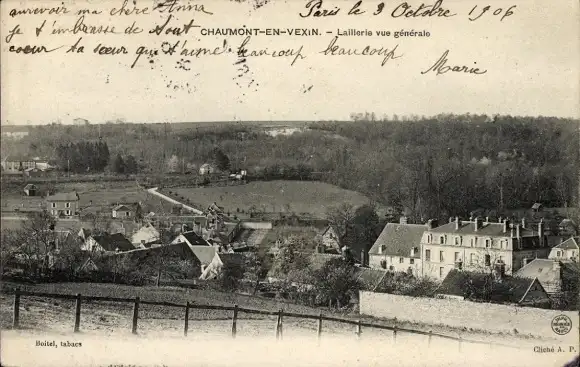 aurevoir ma chère Anna
Paris le 3 Octobre 1906
je t'embrasse de tout
CHAUMONT-EN-VEXIN. - Laillerie vue générale
coeur ta sœur qui t'aime beaucoup beaucoup
Marie
Boitel, tabacs
Cliché A. P.